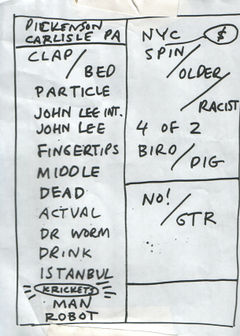 DICKENSON
CARLISLE PA
CLAP/
BED
PARTICLE
JOHN LEE INT.
JOHN LEE
FINGERTIPS
MIDDLE
DEAD
ACTUAL
DR WORM
DRINK
ISTANBUL
KRICKETS
MAN
ROBOT
NYC $
SPIN/
OLDER/
RACIST
4 OF 2
BIRD/
DIG
NO!/
GTR